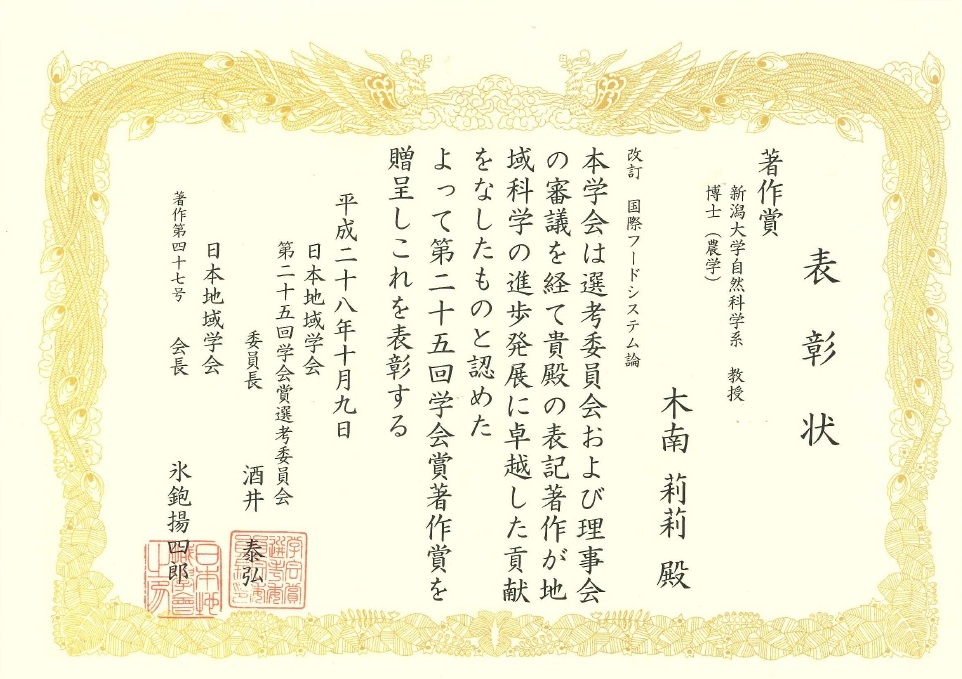 表彰状
著作賞
新潟大学自然科学系　教授
博士（農学）
木南　莉莉　殿
改訂　国際フードシステム論
本学会は選考委員会および理事会
の審議を経て貴殿の表記著作が地
域科学の進歩発展に卓越した貢献
をなしたものと認めた
よって第二十五回学会賞著作賞を
贈呈しこれを表彰する
平成二十八年十月九日
日本地域学会
第二十五回学会賞選考委員会
委員長　酒井　泰弘
日本地域学会
会長　氷鉋揚四郎
著作第四十七号